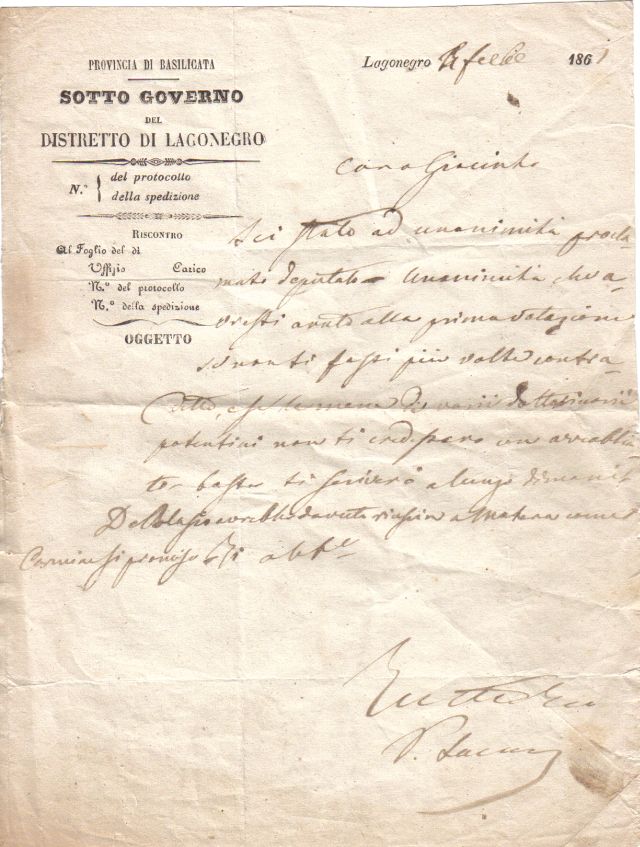 PROVINCIA DI BASILICATA
SOTTO GOVERNO
DEL
DISTRETTO DI LAGONEGRO
N.° del protocollo
della spedizione
RISCONTRO
Al Foglio del di
Uffizio Carico
N.° del protocollo
N.° della spedizione
OGGETTO
Lagonegro 1861
Caro Giacinto
Sei stato ad unanimità procla
mato deputato Unanimità che a-
vresti avuto alla prima votazione
se non ti fossi più volte contra-
potentini non ti
basta ti scriverò a lungo dimani
a Matera come
Carmine si promise
Tutto tuo
P. Lacava